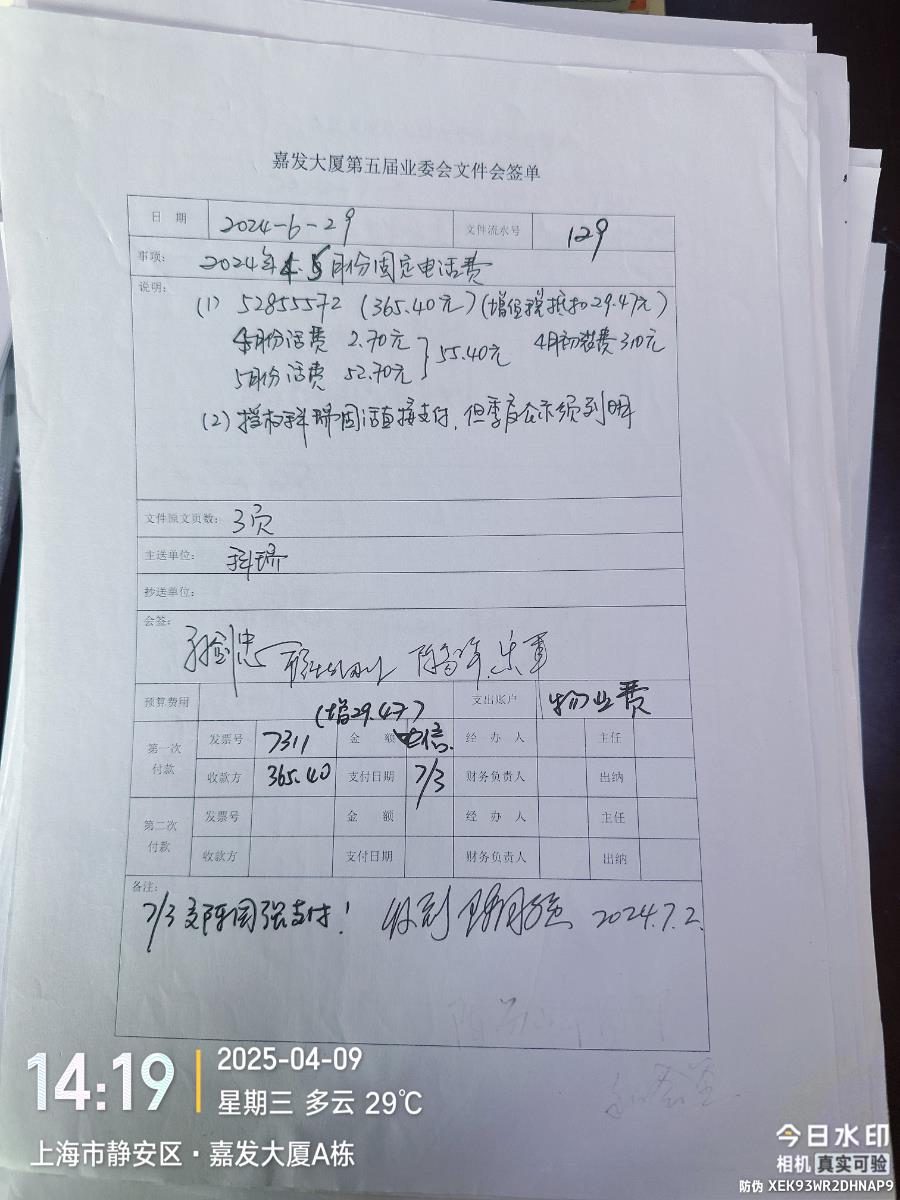 嘉发大厦第五届业委会文件会签单
日 期 2024-6-29 文件流水号 129
事项: 2024年4.5月份固定电话费
说明:
(1) 52855572 (365.40元) (增值税抵扣29.47元)
4月份话费 2.70元 } 55.40元 4月初装费310元
5月份话费 52.70元
(2) 授权科瑞固话直接支付, 但季度公示须列明
文件原文页数: 3页
主送单位: 科瑞
抄送单位:
会签:
预算费用 (增29.47) 支出账户 物业费
第一次付款 发票号 7311 金 额 电信. 经 办 人 主任
收款方 365.40 支付日期 7/3 财务负责人 出纳
第二次付款 发票号 金 额 经 办 人 主任
收款方 支付日期 财务负责人 出纳
备注:
7/3交陈国强支付! 收到 2024.7.2
14:19 2025-04-09
星期三 多云 29℃
上海市静安区·嘉发大厦A栋
今日水印
相机 真实可验
防伪 XEK93WR2DHNAP9